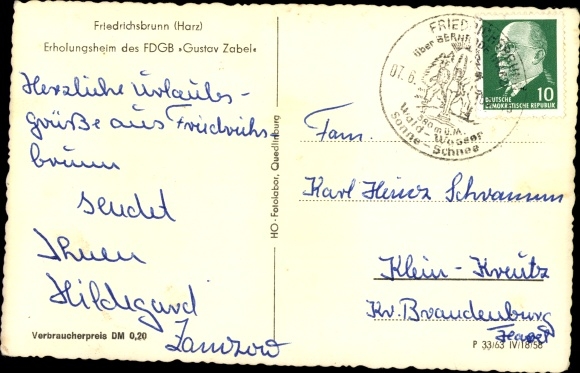 Friedrichsbrunn (Harz)
Erholungsheim des FDGB »Gustav Zabel«
Herzliche Urlaubs-
grüße aus Friedrichs-
brunn
sendet
Ihnen
Hildegard
Zanzow
Verbraucherpreis DM 0,20
HO-Fotolabor, Quedlinburg
über
07.6.
Wald - Wasser
Sonne - Schnee
10
DEUTSCHE
DEMOKRATISCHE REPUBLIK
Fam.
Karl Heinz Schramm
Klein - Kreutz
Kr. Brandenburg
Havel
P 33/63 IV/18/58